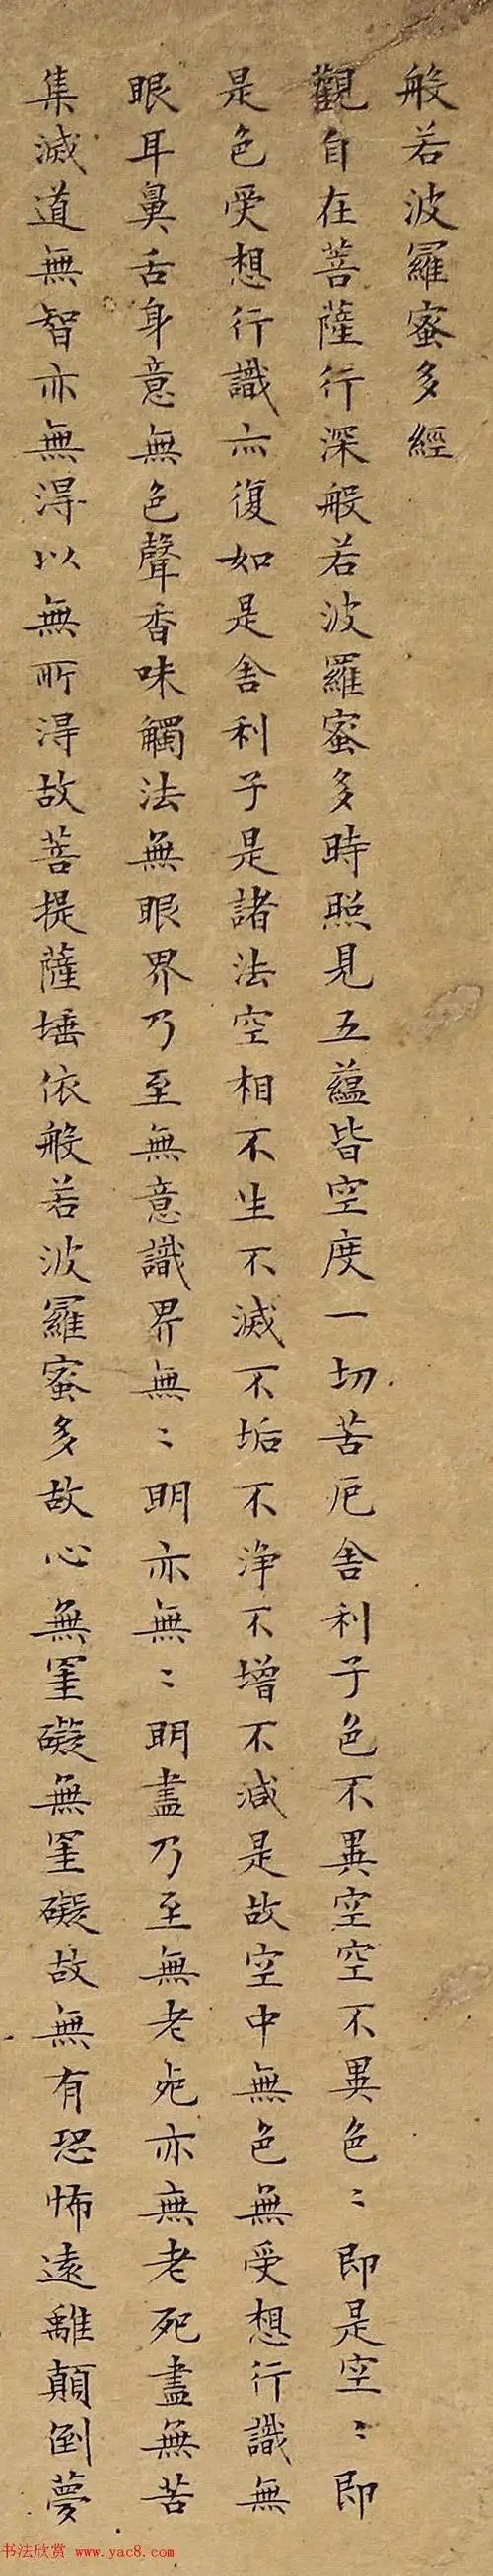 般若波羅蜜多經
觀自在菩薩行深般若波羅蜜多時照見五蘊皆空度一切苦厄舍利子色不異空空不異色〻即是空〻即
是色受想行識亦復如是舍利子是諸法空相不生不滅不垢不淨不增不減是故空中無色無受想行識無
眼耳鼻舌身意無色聲香味觸法無眼界乃至無意識界無〻明亦無〻明盡乃至無老死亦無老死盡無苦
集滅道無智亦無得以無所得故菩提薩埵依般若波羅蜜多故心無罣礙無罣礙故無有恐怖遠離顛倒夢
书法欣赏 www.yac8.com